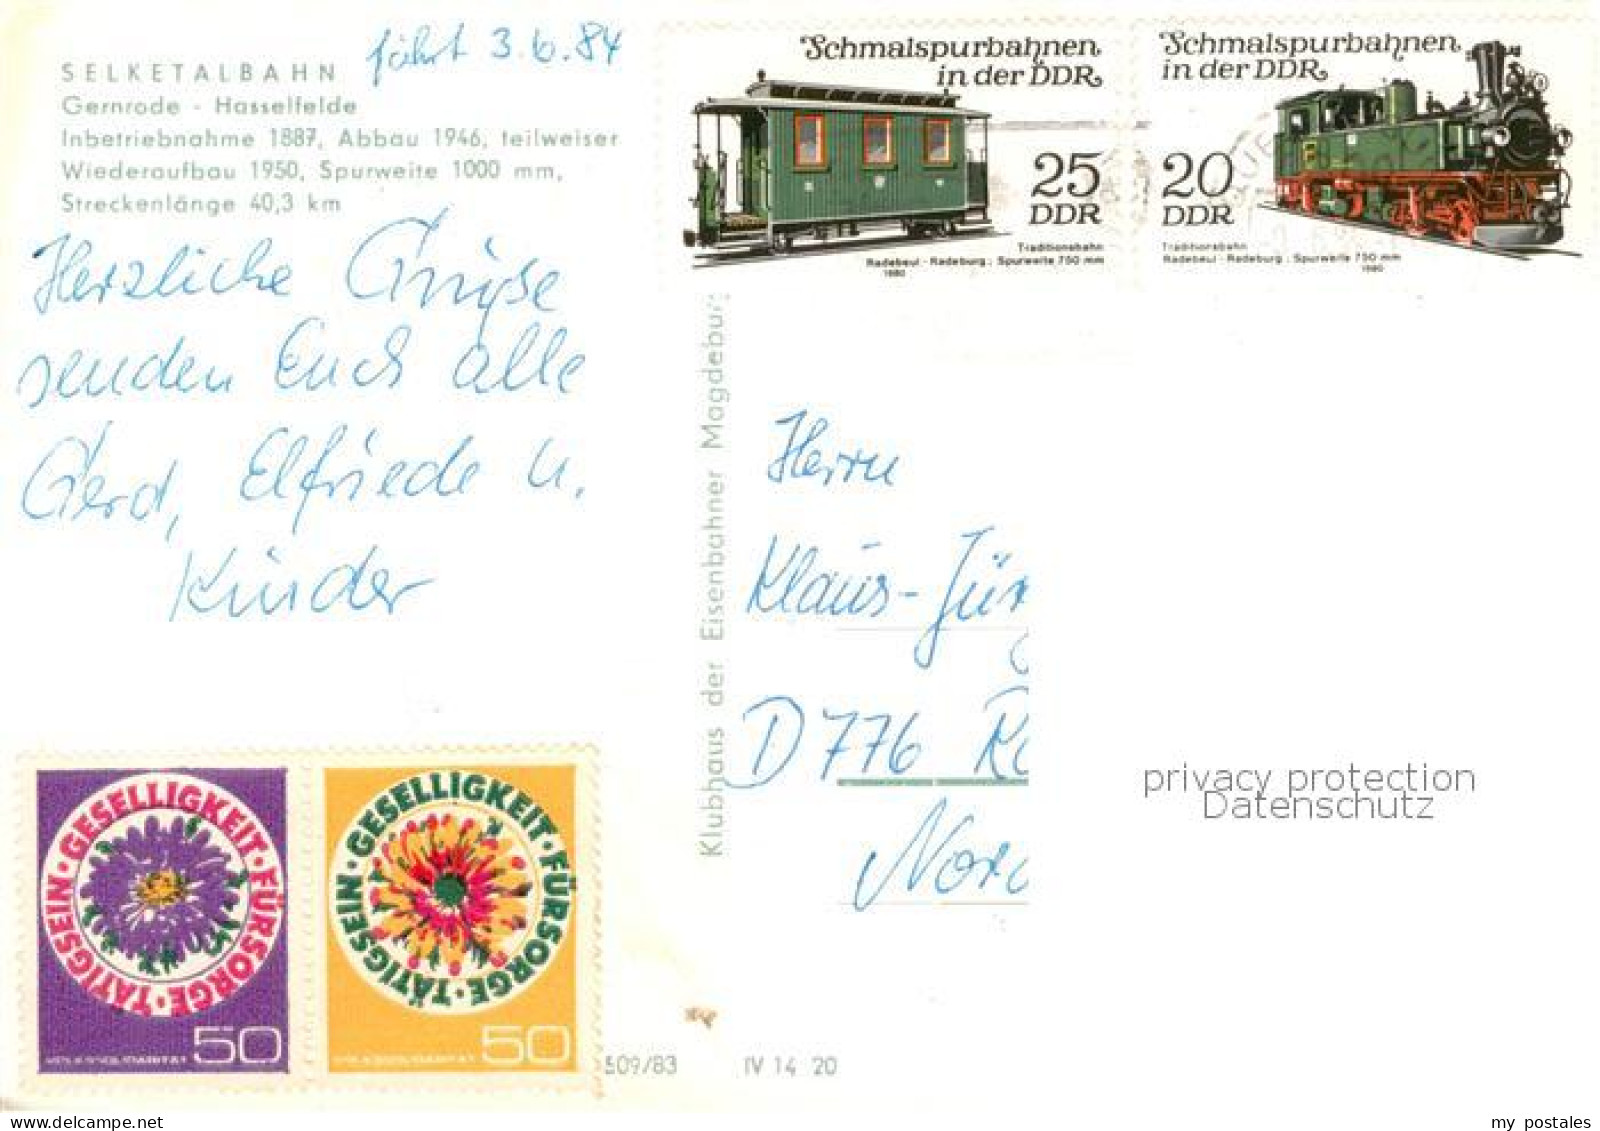 SELKETALBAHN
Gernrode - Hasselfelde
Inbetriebnahme 1887, Abbau 1946, teilweiser
Wiederaufbau 1950, Spurweite 1000 mm,
Streckenlänge 40,3 km
fährt 3.6.84
Herzliche Grüße
senden Euch alle
Gerd, Elfriede u.
Kinder
Schmalspurbahnen
in der DDR
25
DDR
Traditionsbahn
Radebeul - Radeburg; Spurweite 750 mm
1980
Schmalspurbahnen
in der DDR
20
DDR
Traditionsbahn
Radebeul - Radeburg; Spurweite 750 mm
1980
Klubhaus der Eisenbahner Magdeburg
Herrn
Klaus-Jür
D 776
privacy protection
Datenschutz
GESELLIGKEIT · FÜRSORGE · TÄTIGSEIN ·
VOLKSSOLIDARITÄT 50
GESELLIGKEIT · FÜRSORGE · TÄTIGSEIN ·
VOLKSSOLIDARITÄT 50
509/83 IV 14 20
my postales